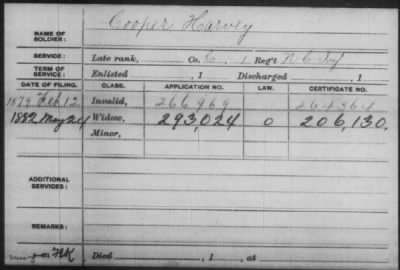 Cooper, Harvey
NAME OF SOLDIER:
SERVICE: Late rank, Co. C, 1 Reg't N.C. Inf
TERM OF SERVICE: Enlisted , 1 Discharged , 1
DATE OF FILING. CLASS. APPLICATION NO. LAW. CERTIFICATE NO.
1879 Feb. 12 Invalid, 266969 264364
1882 May 24 Widow, 293,024 0 206,130.
Minor,
ADDITIONAL SERVICES:
REMARKS:
Died , 1 , at